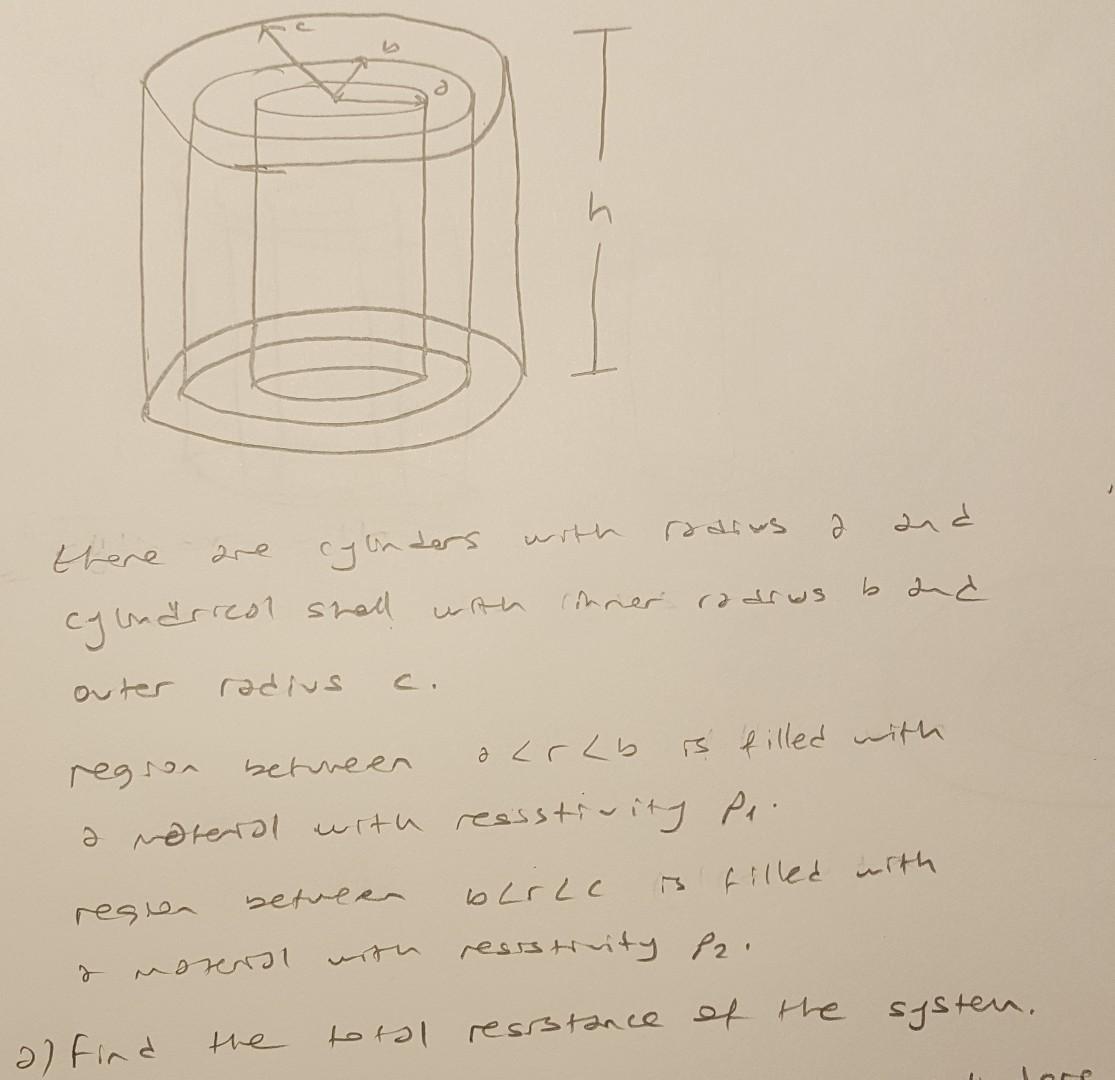 c
b
a
h
there are cylinders with radius a and
cylindrical shell with inner radius b and
outer radius c.
region between a < r < b is filled with
a material with resisstivity ρ1.
region between b < r < c is filled with
a material with resistivity ρ2.
a) Find the total resistance of the system.